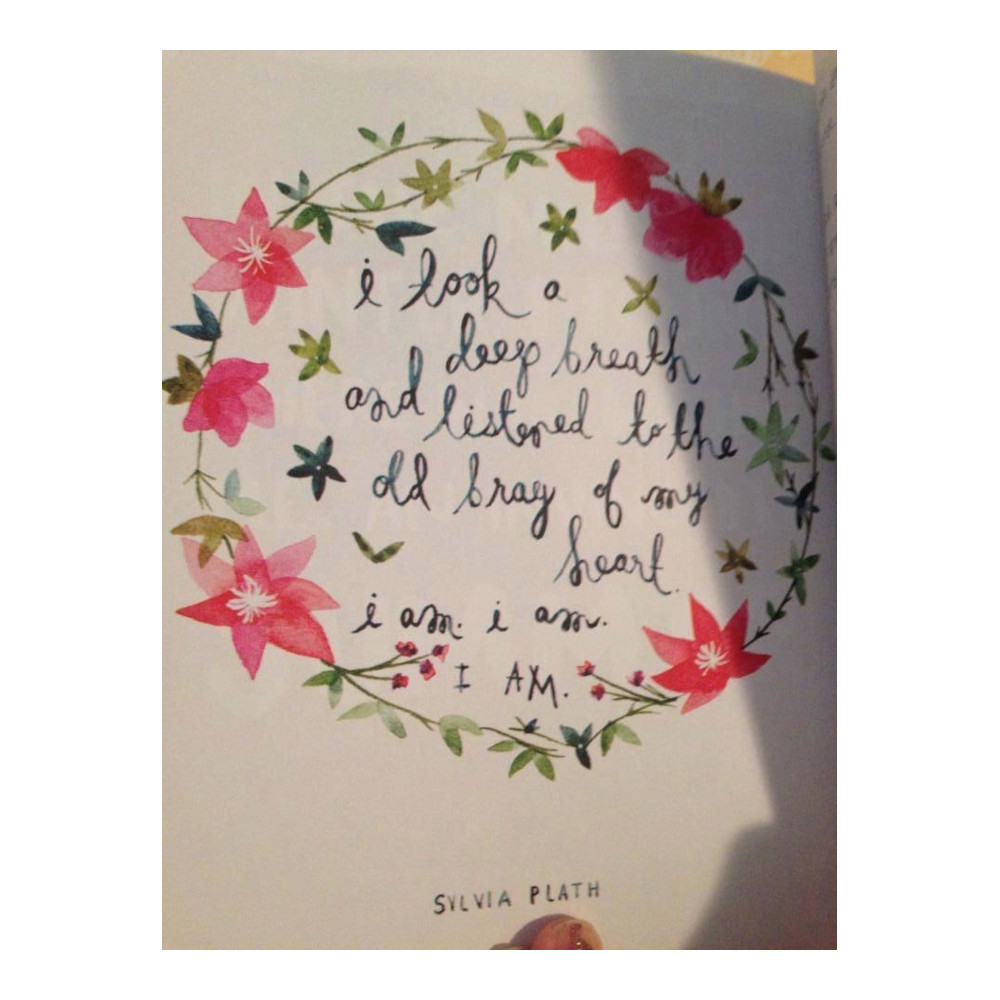 i took a
deep breath
and listened to the
old bray of my
heart.
i am. i am.
I AM.
SYLVIA PLATH